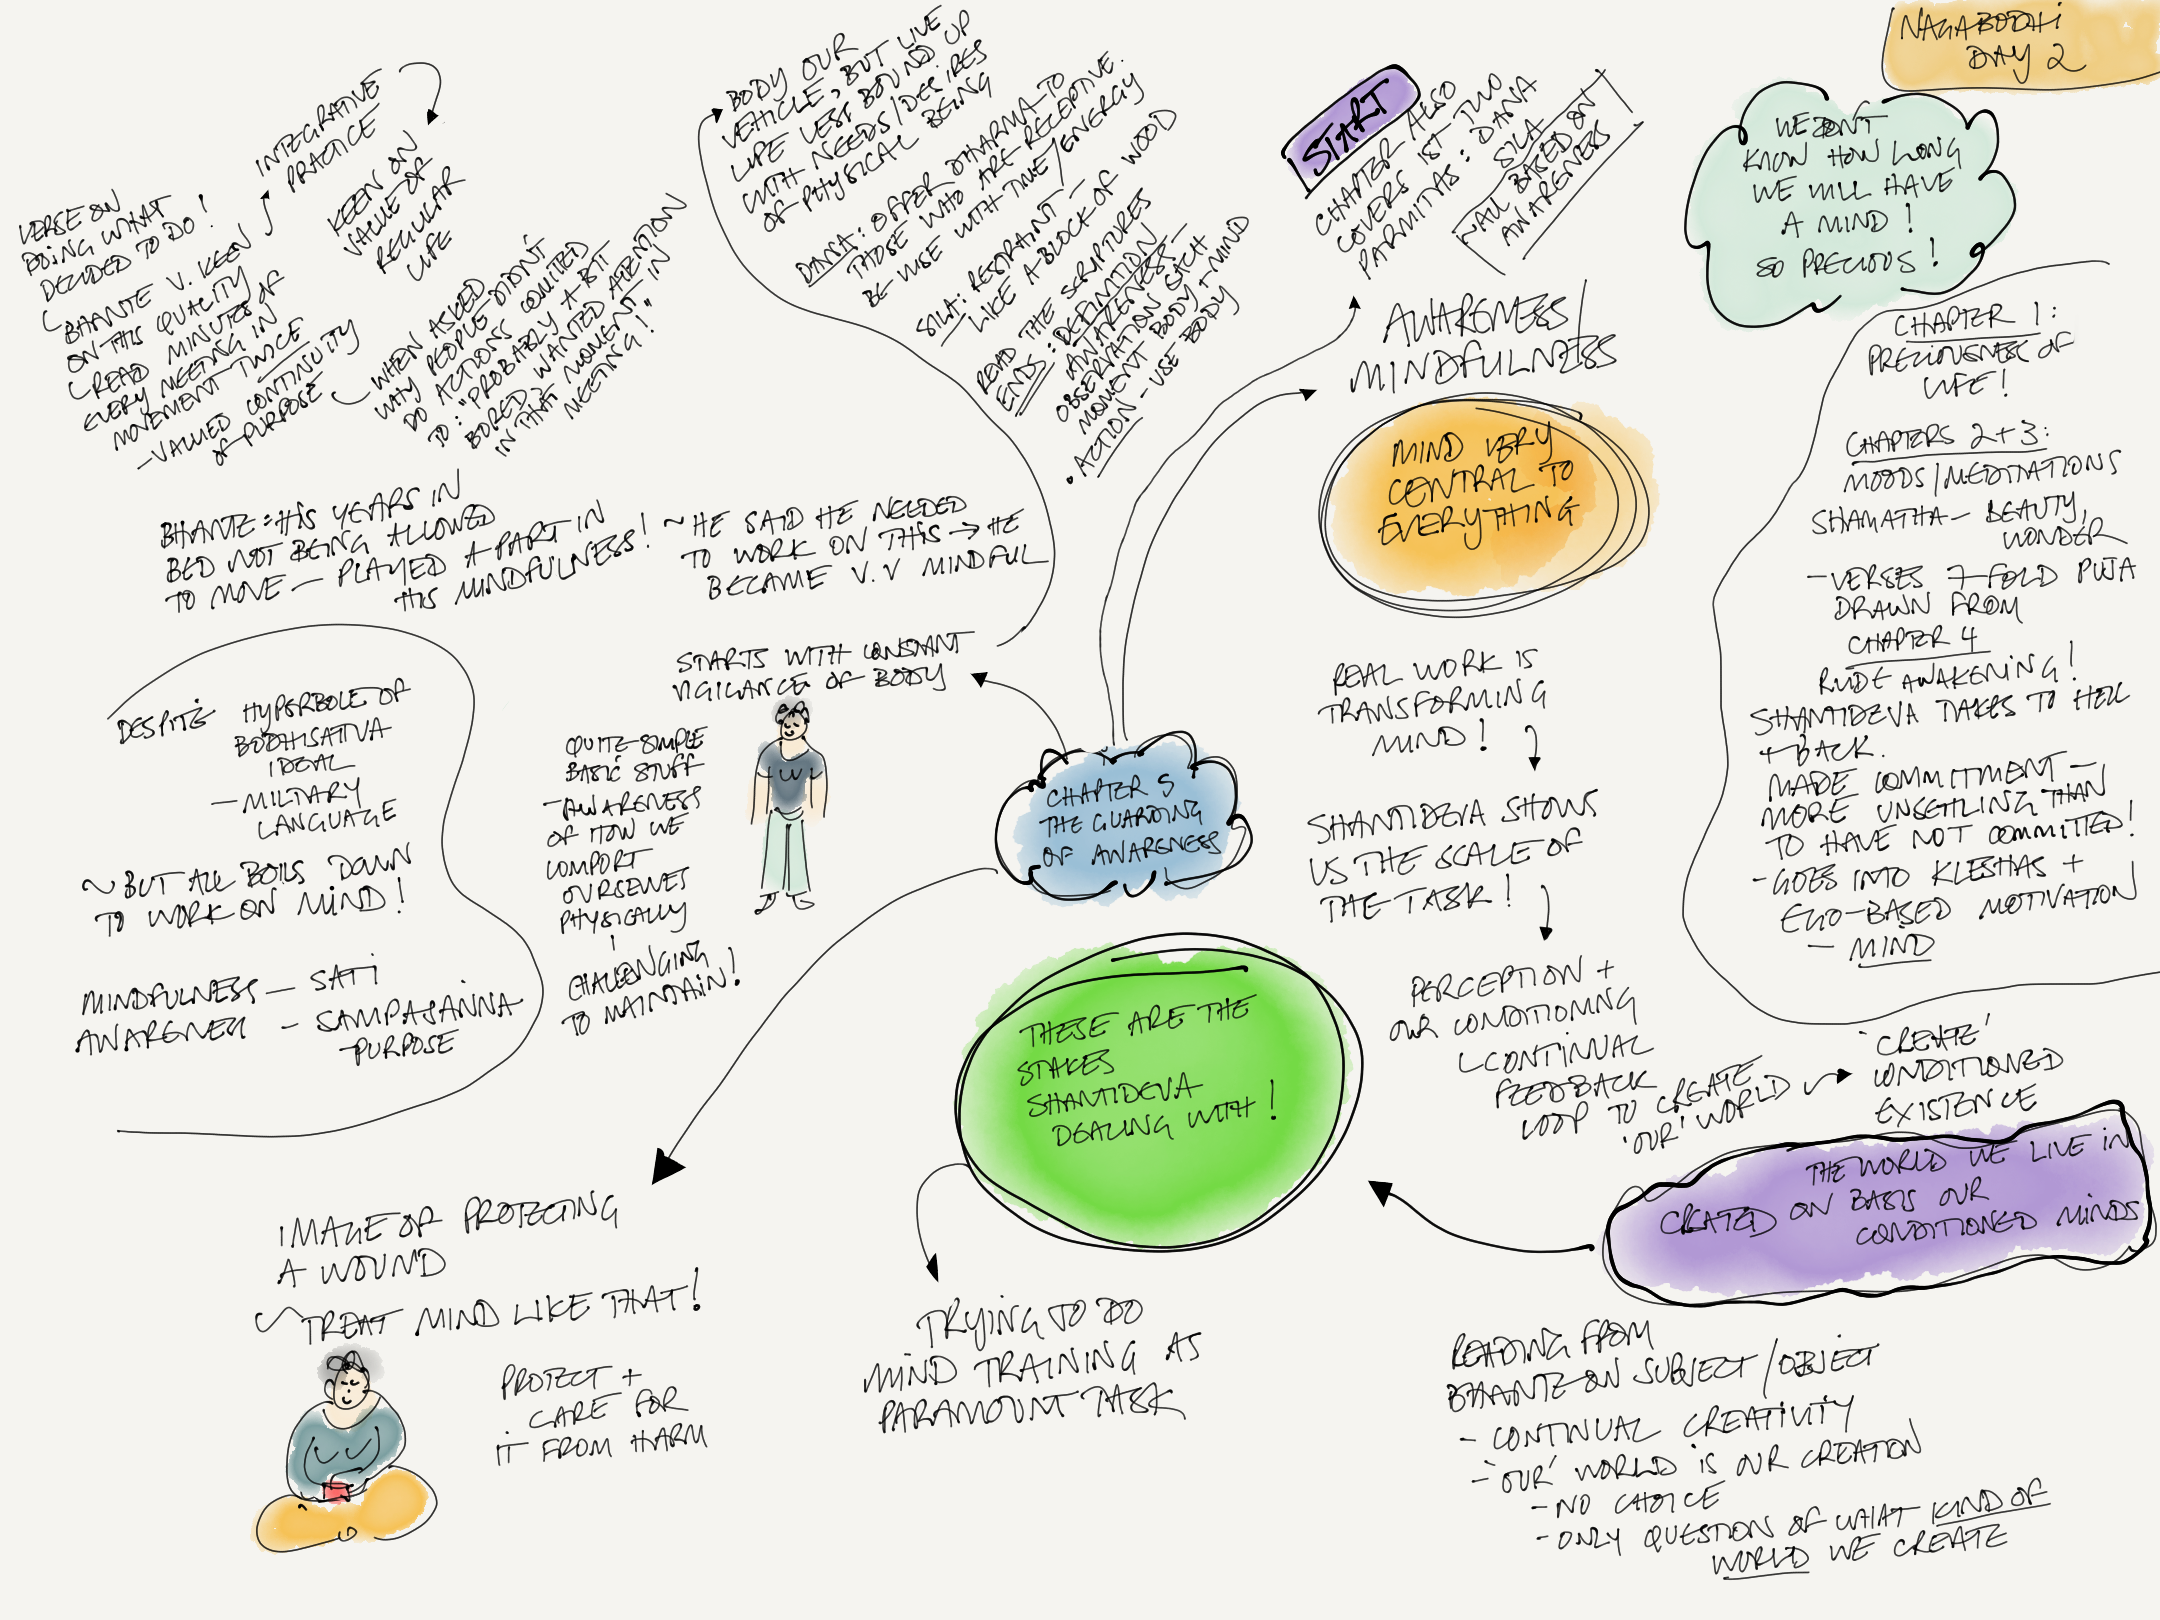 NAGABODHI
DAY 2
WE DON'T
KNOW HOW LONG
WE WILL HAVE
A MIND!
SO PRECIOUS!
CHAPTER 1:
PRECIOUSNESS OF
LIFE!
CHAPTERS 2+3:
MOODS/MEDITATIONS
SHAMATHA – BEAUTY,
WONDER
– VERSES 7-FOLD PUJA
DRAWN FROM
CHAPTER 4
RUDE AWAKENING!
SHANTIDEVA TAKES TO HELL
+ BACK.
MADE COMMITMENT –
MORE UNSETTLING THAN
TO HAVE NOT COMMITTED!
- GOES INTO KLESHAS +
EGO-BASED MOTIVATION
– MIND
START
CHAPTER ALSO
COVERS 1ST TWO
PARMITAS: DANA
SILA
ALL BASED ON
AWARENESS
AWARENESS/
MINDFULNESS
MIND VERY
CENTRAL TO
EVERYTHING
REAL WORK IS
TRANSFORMING
MIND!
SHANTIDEVA SHOWS
US THE SCALE OF
THE TASK!
PERCEPTION +
OUR CONDITIONING
CONTINUAL
FEEDBACK
LOOP TO CREATE
'OUR' WORLD
'CREATE'
CONDITIONED
EXISTENCE
THE WORLD WE LIVE IN
CREATED ON BASIS OUR
CONDITIONED MINDS
READING FROM
BHANTE ON SUBJECT/OBJECT
- CONTINUAL CREATIVITY
- 'OUR' WORLD IS OUR CREATION
- NO CHOICE
- ONLY QUESTION OF WHAT KIND OF
WORLD WE CREATE
THESE ARE THE
STAKES
SHANTIDEVA
DEALING WITH!
TRYING TO DO
MIND TRAINING AS
PARAMOUNT TASK
CHAPTER 5
THE GUARDING
OF AWARENESS
STARTS WITH CONSTANT
VIGILANCE OF BODY
QUITE SIMPLE
BASIC STUFF
– AWARENESS
OF HOW WE
COMPORT
OURSELVES
PHYSICALLY
CHALLENGING
TO MAINTAIN!
BODY OUR
VEHICLE, BUT LIVE
LIFE LEST BOUND UP
WITH NEEDS/DESIRES
OF PHYSICAL BEING
DANA: OFFER DHARMA TO
THOSE WHO ARE RECEPTIVE.
BE WISE WITH TIME/ENERGY
SILA: RESTRAINT –
LIKE A BLOCK OF WOOD
READ THE SCRIPTURES
ENDS: DEFINITION
AWARENESS –
OBSERVATION EACH
MOMENT BODY + MIND
• ACTION – USE BODY
VERSE ON
DOING WHAT
DECIDED TO DO!
BHANTE V. KEEN
ON THIS QUALITY
READ MINUTES OF
EVERY MEETING IN
MOVEMENT TWICE
– VALUED CONTINUITY
OF PURPOSE
INTEGRATIVE
PRACTICE
KEEN ON
VALUE OF
REGULAR
LIFE
WHEN ASKED
WHY PEOPLE DIDN'T
DO ACTIONS COMITED
TO: "PROBABLY A BIT
BORED & WANTED ATTENTION
IN THAT MOMENT IN
MEETING!"
BHANTE: HIS YEARS IN
BED NOT BEING ALLOWED
TO MOVE – PLAYED A PART IN
HIS MINDFULNESS!
~ HE SAID HE NEEDED
TO WORK ON THIS → HE
BECAME V.V MINDFUL
DESPITE HYPERBOLE OF
BODHISATTVA
IDEAL
– MILITARY
LANGUAGE
~ BUT ALL BOILS DOWN
TO WORK ON MIND!
MINDFULNESS – SATI
AWARENESS – SAMPAJANNA
PURPOSE
IMAGE OF PROTECTING
A WOUND
TREAT MIND LIKE THAT!
PROTECT +
CARE FOR
IT FROM HARM